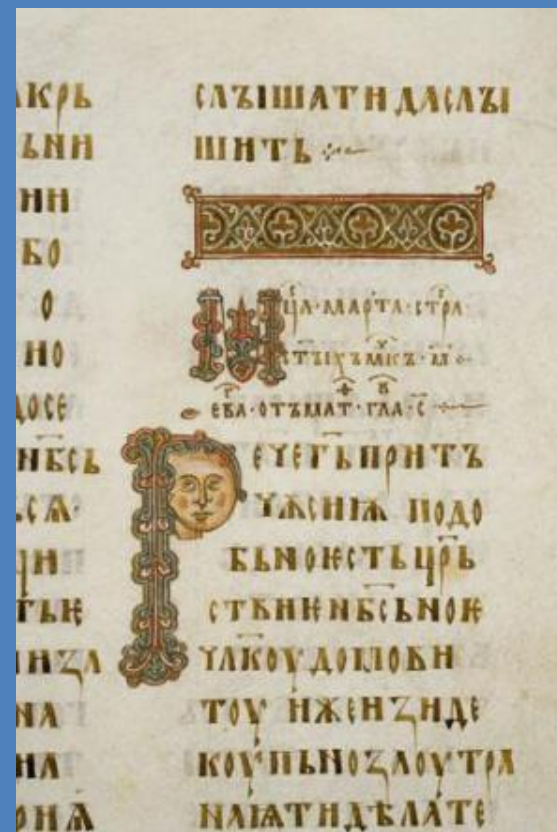 КРЬ
ЬНИ
НИ
БО
О
НО
ДОСЕ
НБ҃СЬ
ЬСѦ·
ЦИ
ТЬѤ
НЗА
НА
НА
ОНѦ
СЛЪІШАТИ ДАСЛЪІ
ШИТЬ
МЦ҃А·МАРТА·СТРА
СТЪІХЪМК҃Ъ·М҃·
ЕВА·ОТЪМАТ·ГЛА·С
РЕЧЕГ҃ЬПРИТЪ
ЧѪСИѬ ПОДО
БЬНОѤСТЬЦР҃Ь
СТВИѤНБ҃СЬНОѤ
ЧЛ҃КОУДОМОВИ
ТОУ ИЖЕИЗИДЕ
КОУПЬНОЗАОУТРА
НАѨТИДѢЛАТЕ